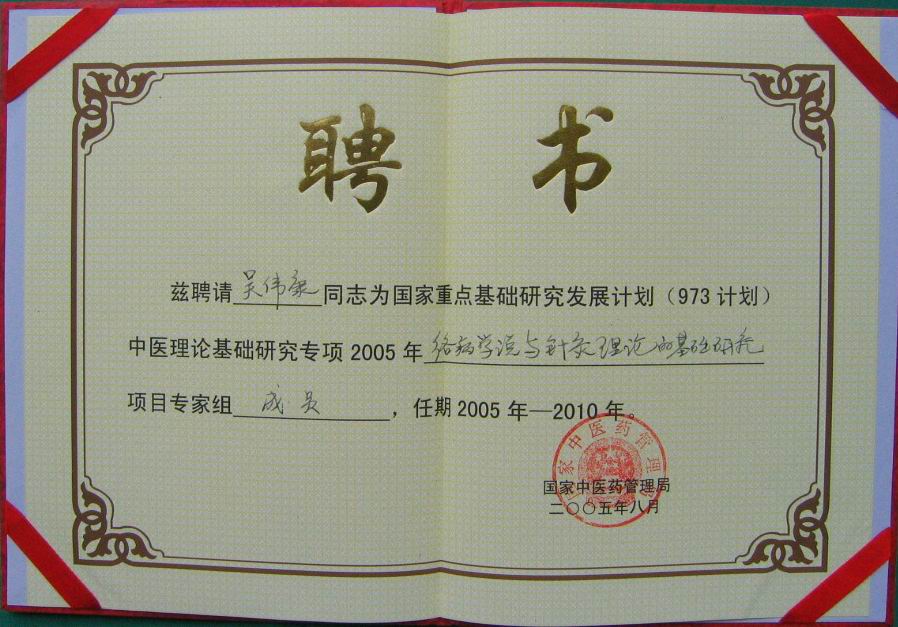 聘 书
兹聘请吴伟康同志为国家重点基础研究发展计划（973计划）
中医理论基础研究专项2005年络病学说与针灸理论的基础研究
项目专家组成员，任期2005年—2010年。
家中医药管理
国家中医药管理局
二〇〇五年八月